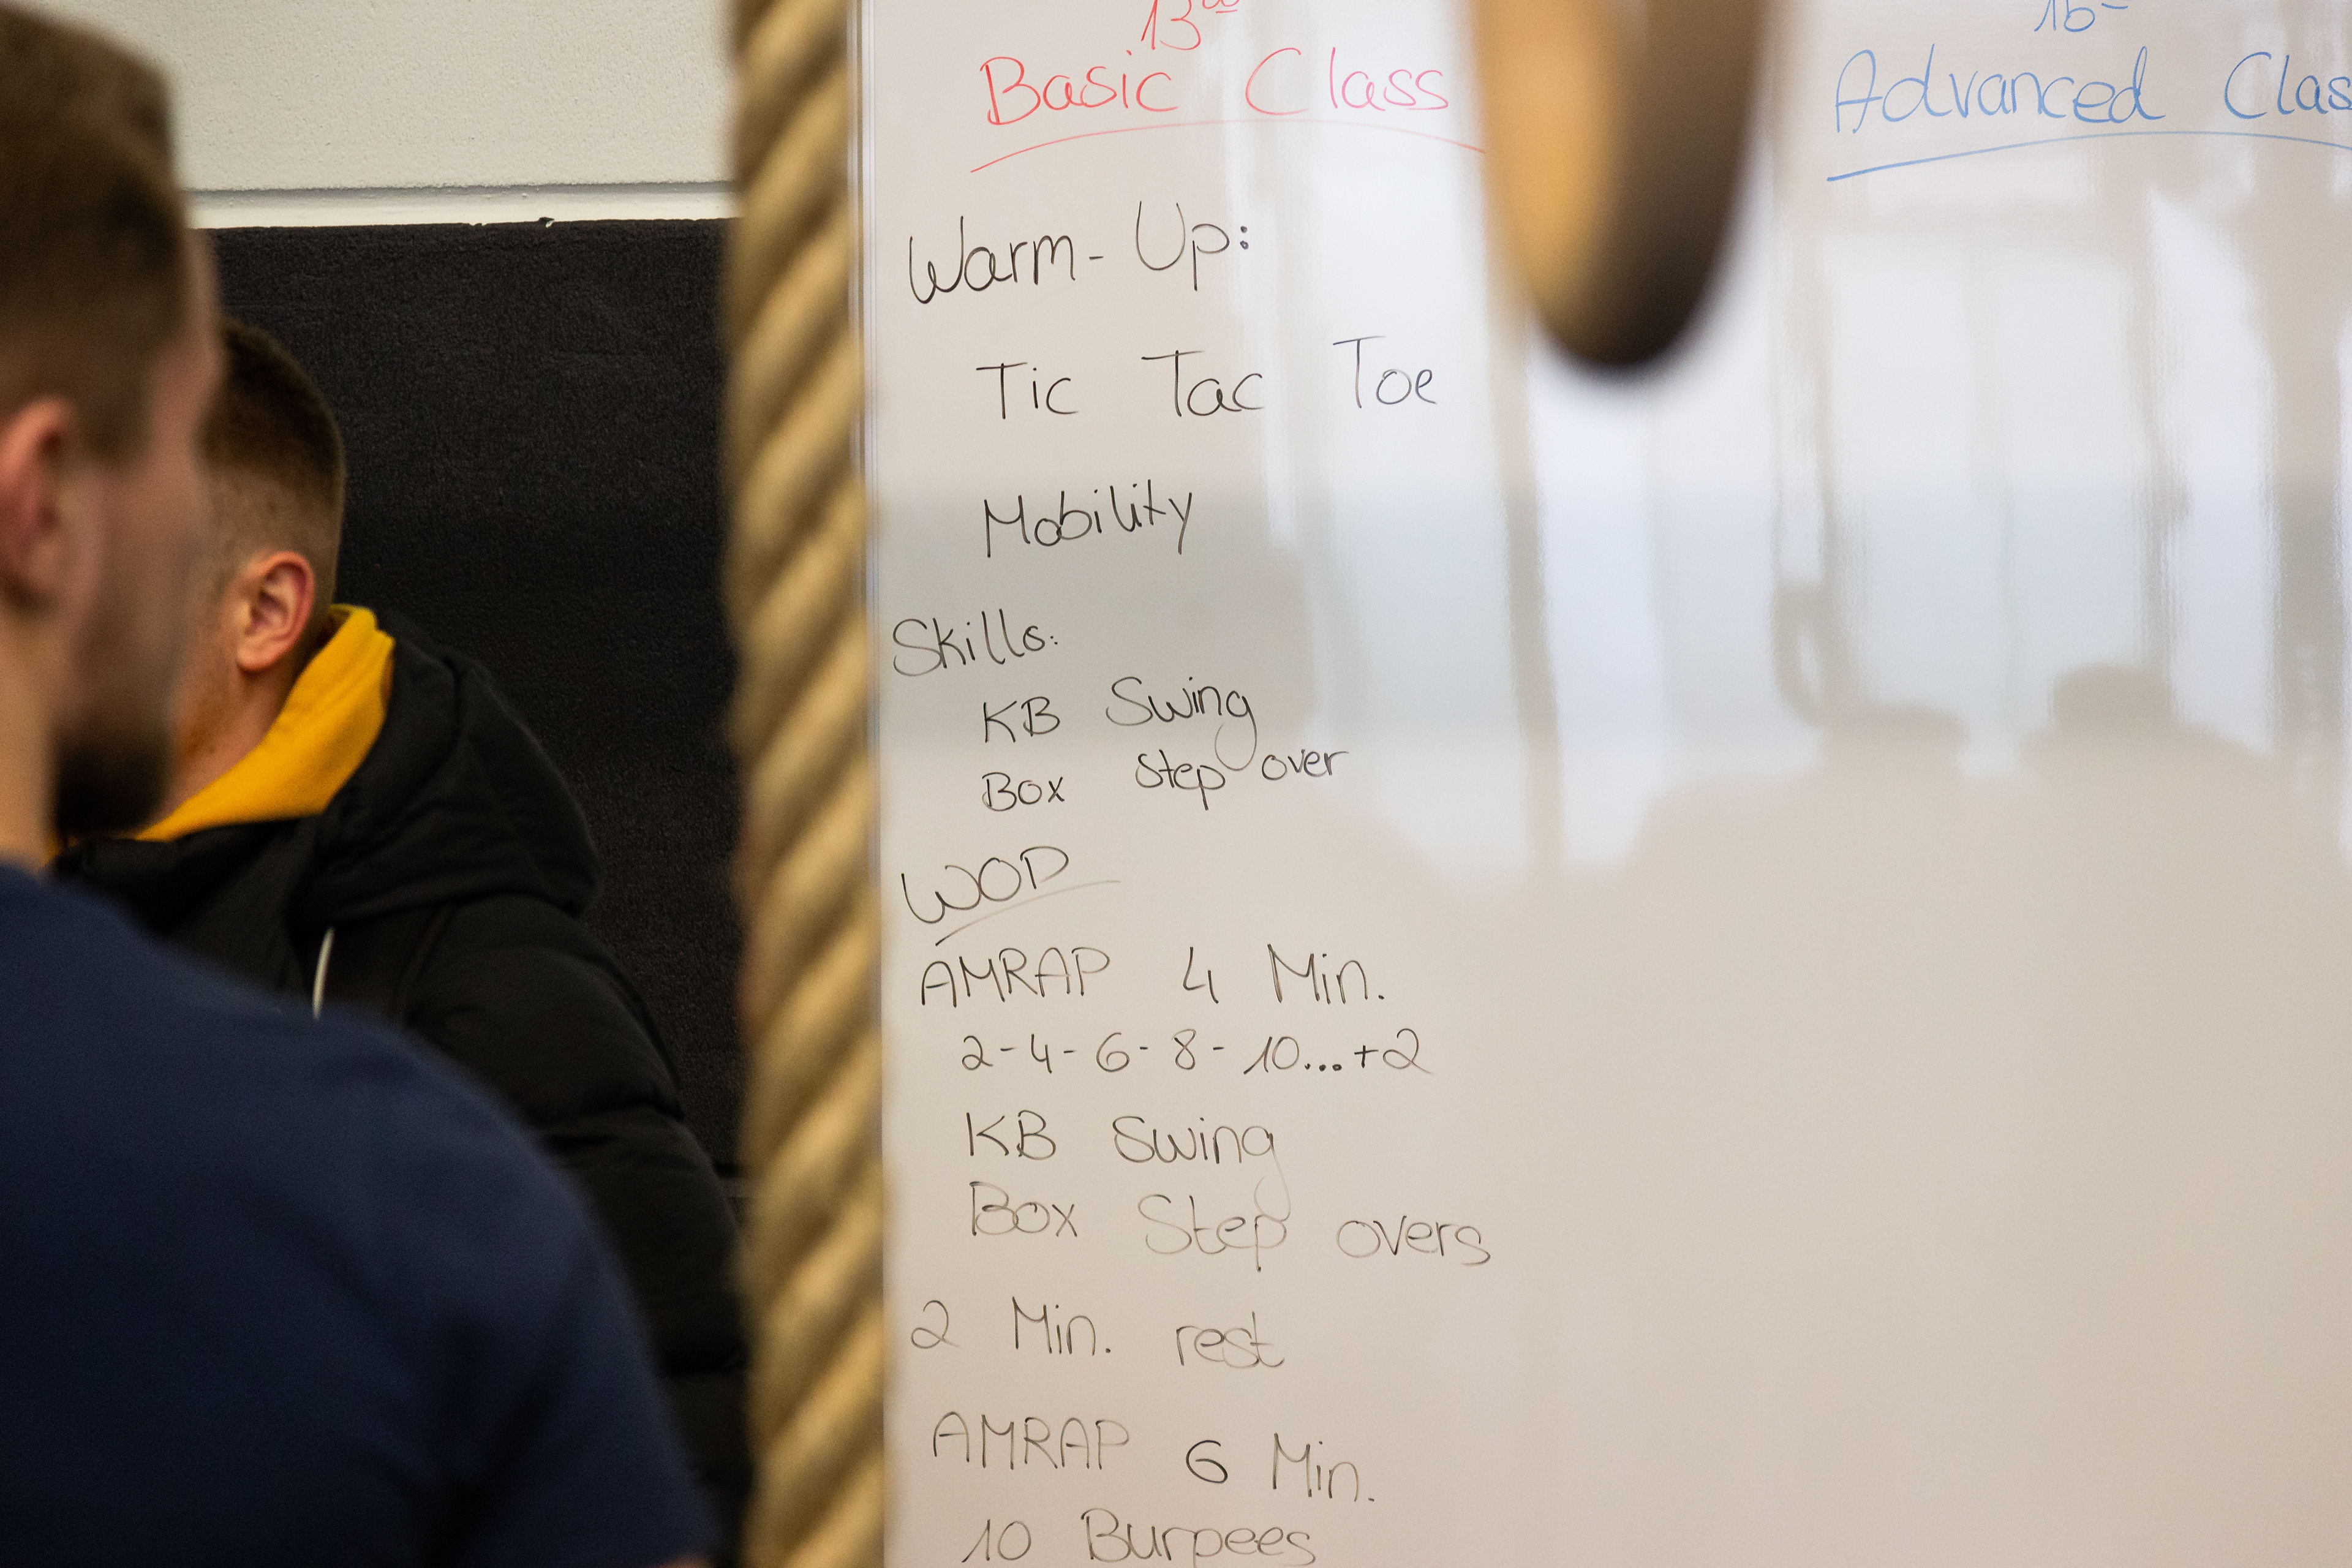 13⁰⁰
Basic Class
Warm-Up:
Tic Tac Toe
Mobility
Skills:
KB Swing
Box Step over
WOD
AMRAP 4 Min.
2-4-6-8-10...+2
KB Swing
Box Step overs
2 Min. rest
AMRAP 6 Min.
10 Burpees
Advanced Clas